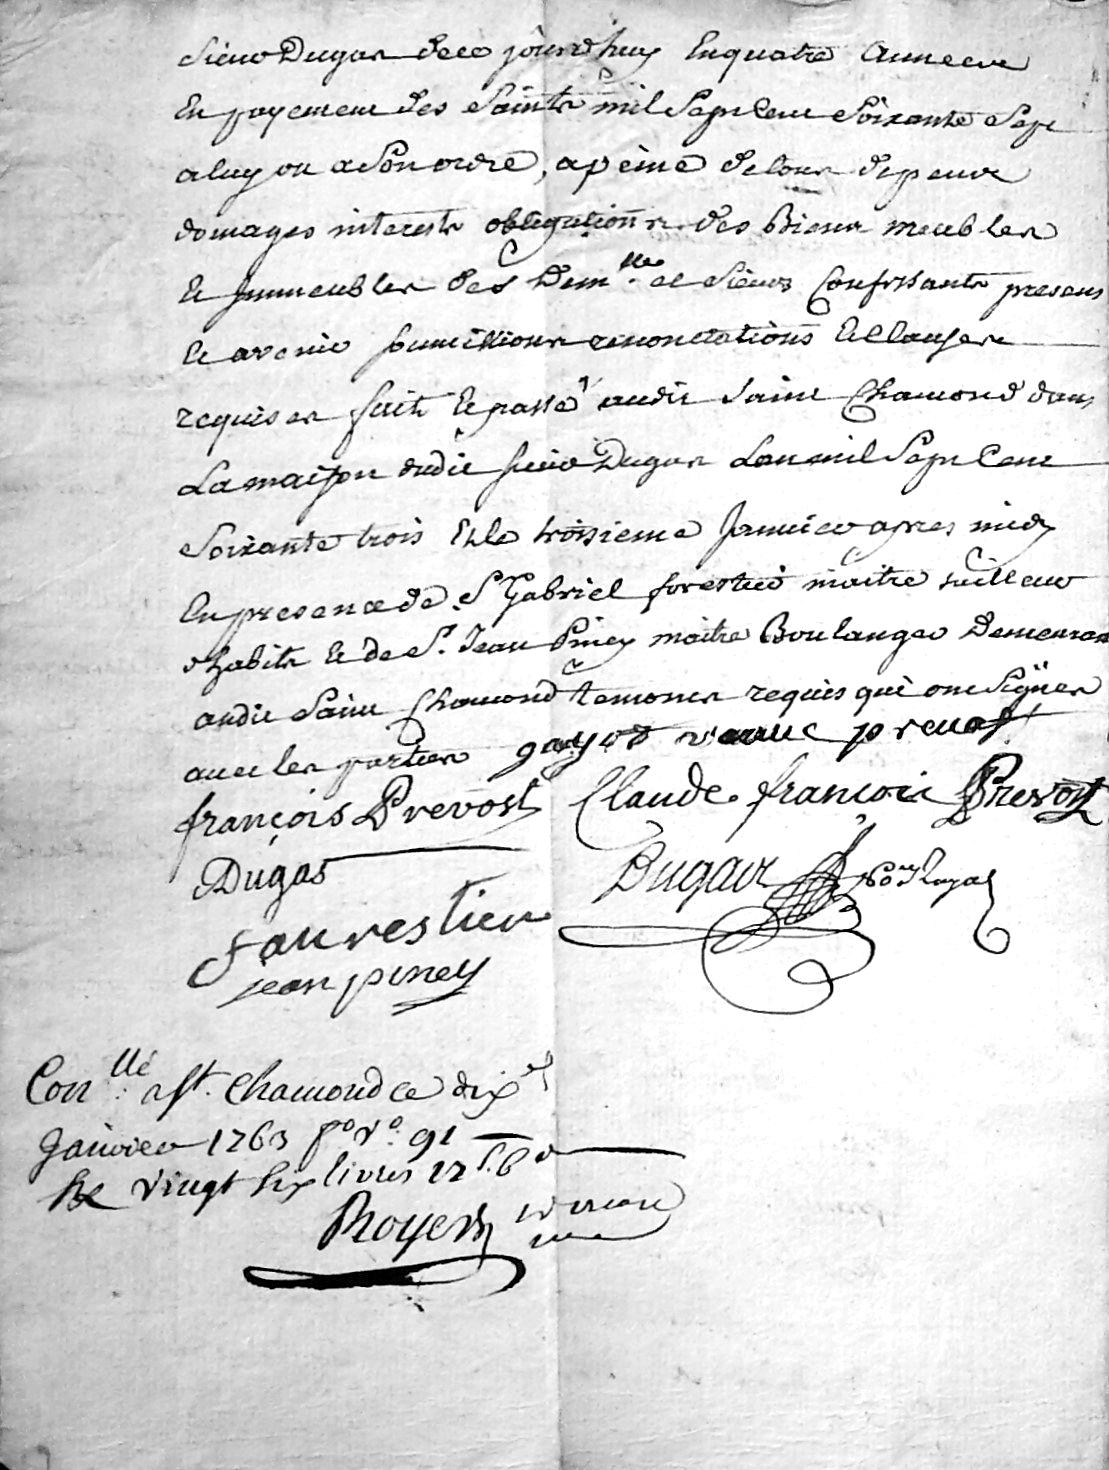 Sieur Dugas dece jourdhuy En quatre Annees
En payement des Saints mil Sept Cent Soixante Sept
a luy ou a Son ordre, a peine de tous depens
domages interests obligations des Biens meubles
et Immeubles des Dem.lle et Sieurs Confessants presens
et avenir soumissions renonciations et Clauses
requises fait et passé audit Saint Chamond dans
La maison dudit sieur Dugas Lan mil Sept Cent
Soixante trois et le troisieme Janvier apres midy
En presence de S.r Gabriel forestier maitre tailleur
d'habits et de S.r Jean Piney maitre Boulanger Demeurant
audit Saint Chamond temoins requis qui ont Signés
avec les parties gayot veuue prevost
françois Prevost Claude françois Prevost
Dugas Dugas No.re Royal
faurestier
jean piney
Con.llé a St. Chamond ce dix
Janvier 1763 f.o v.o 91
Re vingt six livres 12 s. 6 d
Royer